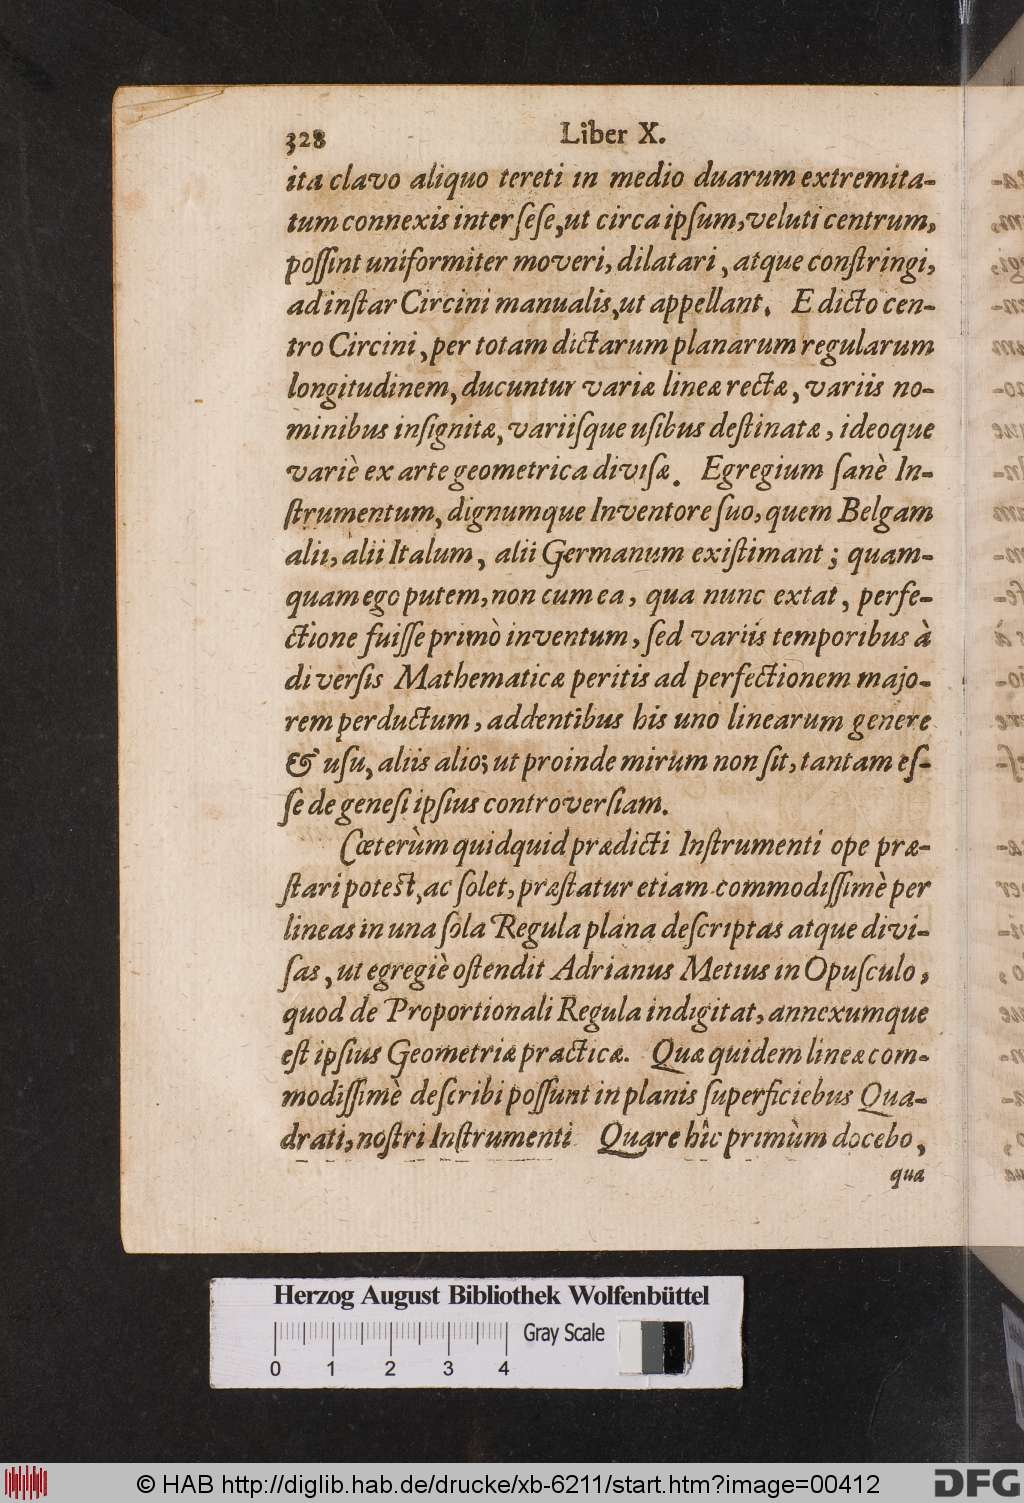 328 Liber X.
ita clavo aliquo tereti in medio duarum extremita-
tum connexis inter ſeſe, ut circa ipſum, veluti centrum,
poſſint uniformiter moveri, dilatari, atque conſtringi,
ad inſtar Circini manualis, ut appellant. E dicto cen-
tro Circini, per totam dictarum planarum regularum
longitudinem, ducuntur variæ lineæ rectæ, variis no-
minibus inſignitæ, variiſque uſibus deſtinatæ, ideoque
variè ex arte geometrica diviſæ. Egregium ſanè In-
ſtrumentum, dignumque Inventore ſuo, quem Belgam
alii, alii Italum, alii Germanum exiſtimant; quam-
quam ego putem, non cum ea, qua nunc extat, perfe-
ctione fuiſſe primò inventum, ſed variis temporibus à
diverſis Mathematicæ peritis ad perfectionem majo-
rem perductum, addentibus his uno linearum genere
& uſu, aliis alio; ut proinde mirum non ſit, tantam eſ-
ſe de geneſi ipſius controverſiam.
Cœterùm quidquid prædicti Inſtrumenti ope præ-
ſtari potest, ac ſolet, præſtatur etiam commodiſſimè per
lineas in una ſola Regula plana deſcriptas atque divi-
ſas, ut egregiè oſtendit Adrianus Metius in Opuſculo,
quod de Proportionali Regula indigitat, annexumque
eſt ipſius Geometriæ practicæ. Quæ quidem lineæ com-
modiſſimè deſcribi poſſunt in planis ſuperficiebus Qua-
drati, noſtri Inſtrumenti Quare hîc primùm docebo,
qua
Herzog August Bibliothek Wolfenbüttel
Gray Scale
0 1 2 3 4
© HAB http://diglib.hab.de/drucke/xb-6211/start.htm?image=00412
DFG